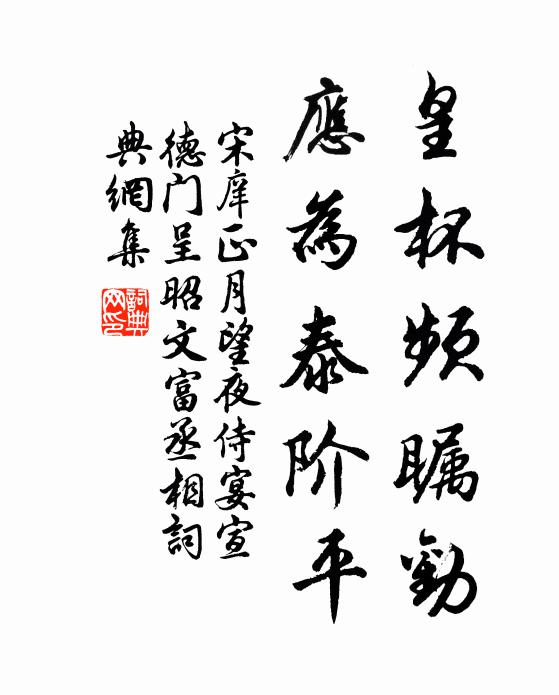 皇杯频瞩勸
應為泰阶平
宋庠正月望夜侍宴宣
德门呈昭文富丞相詞
典網集
詞典
网印